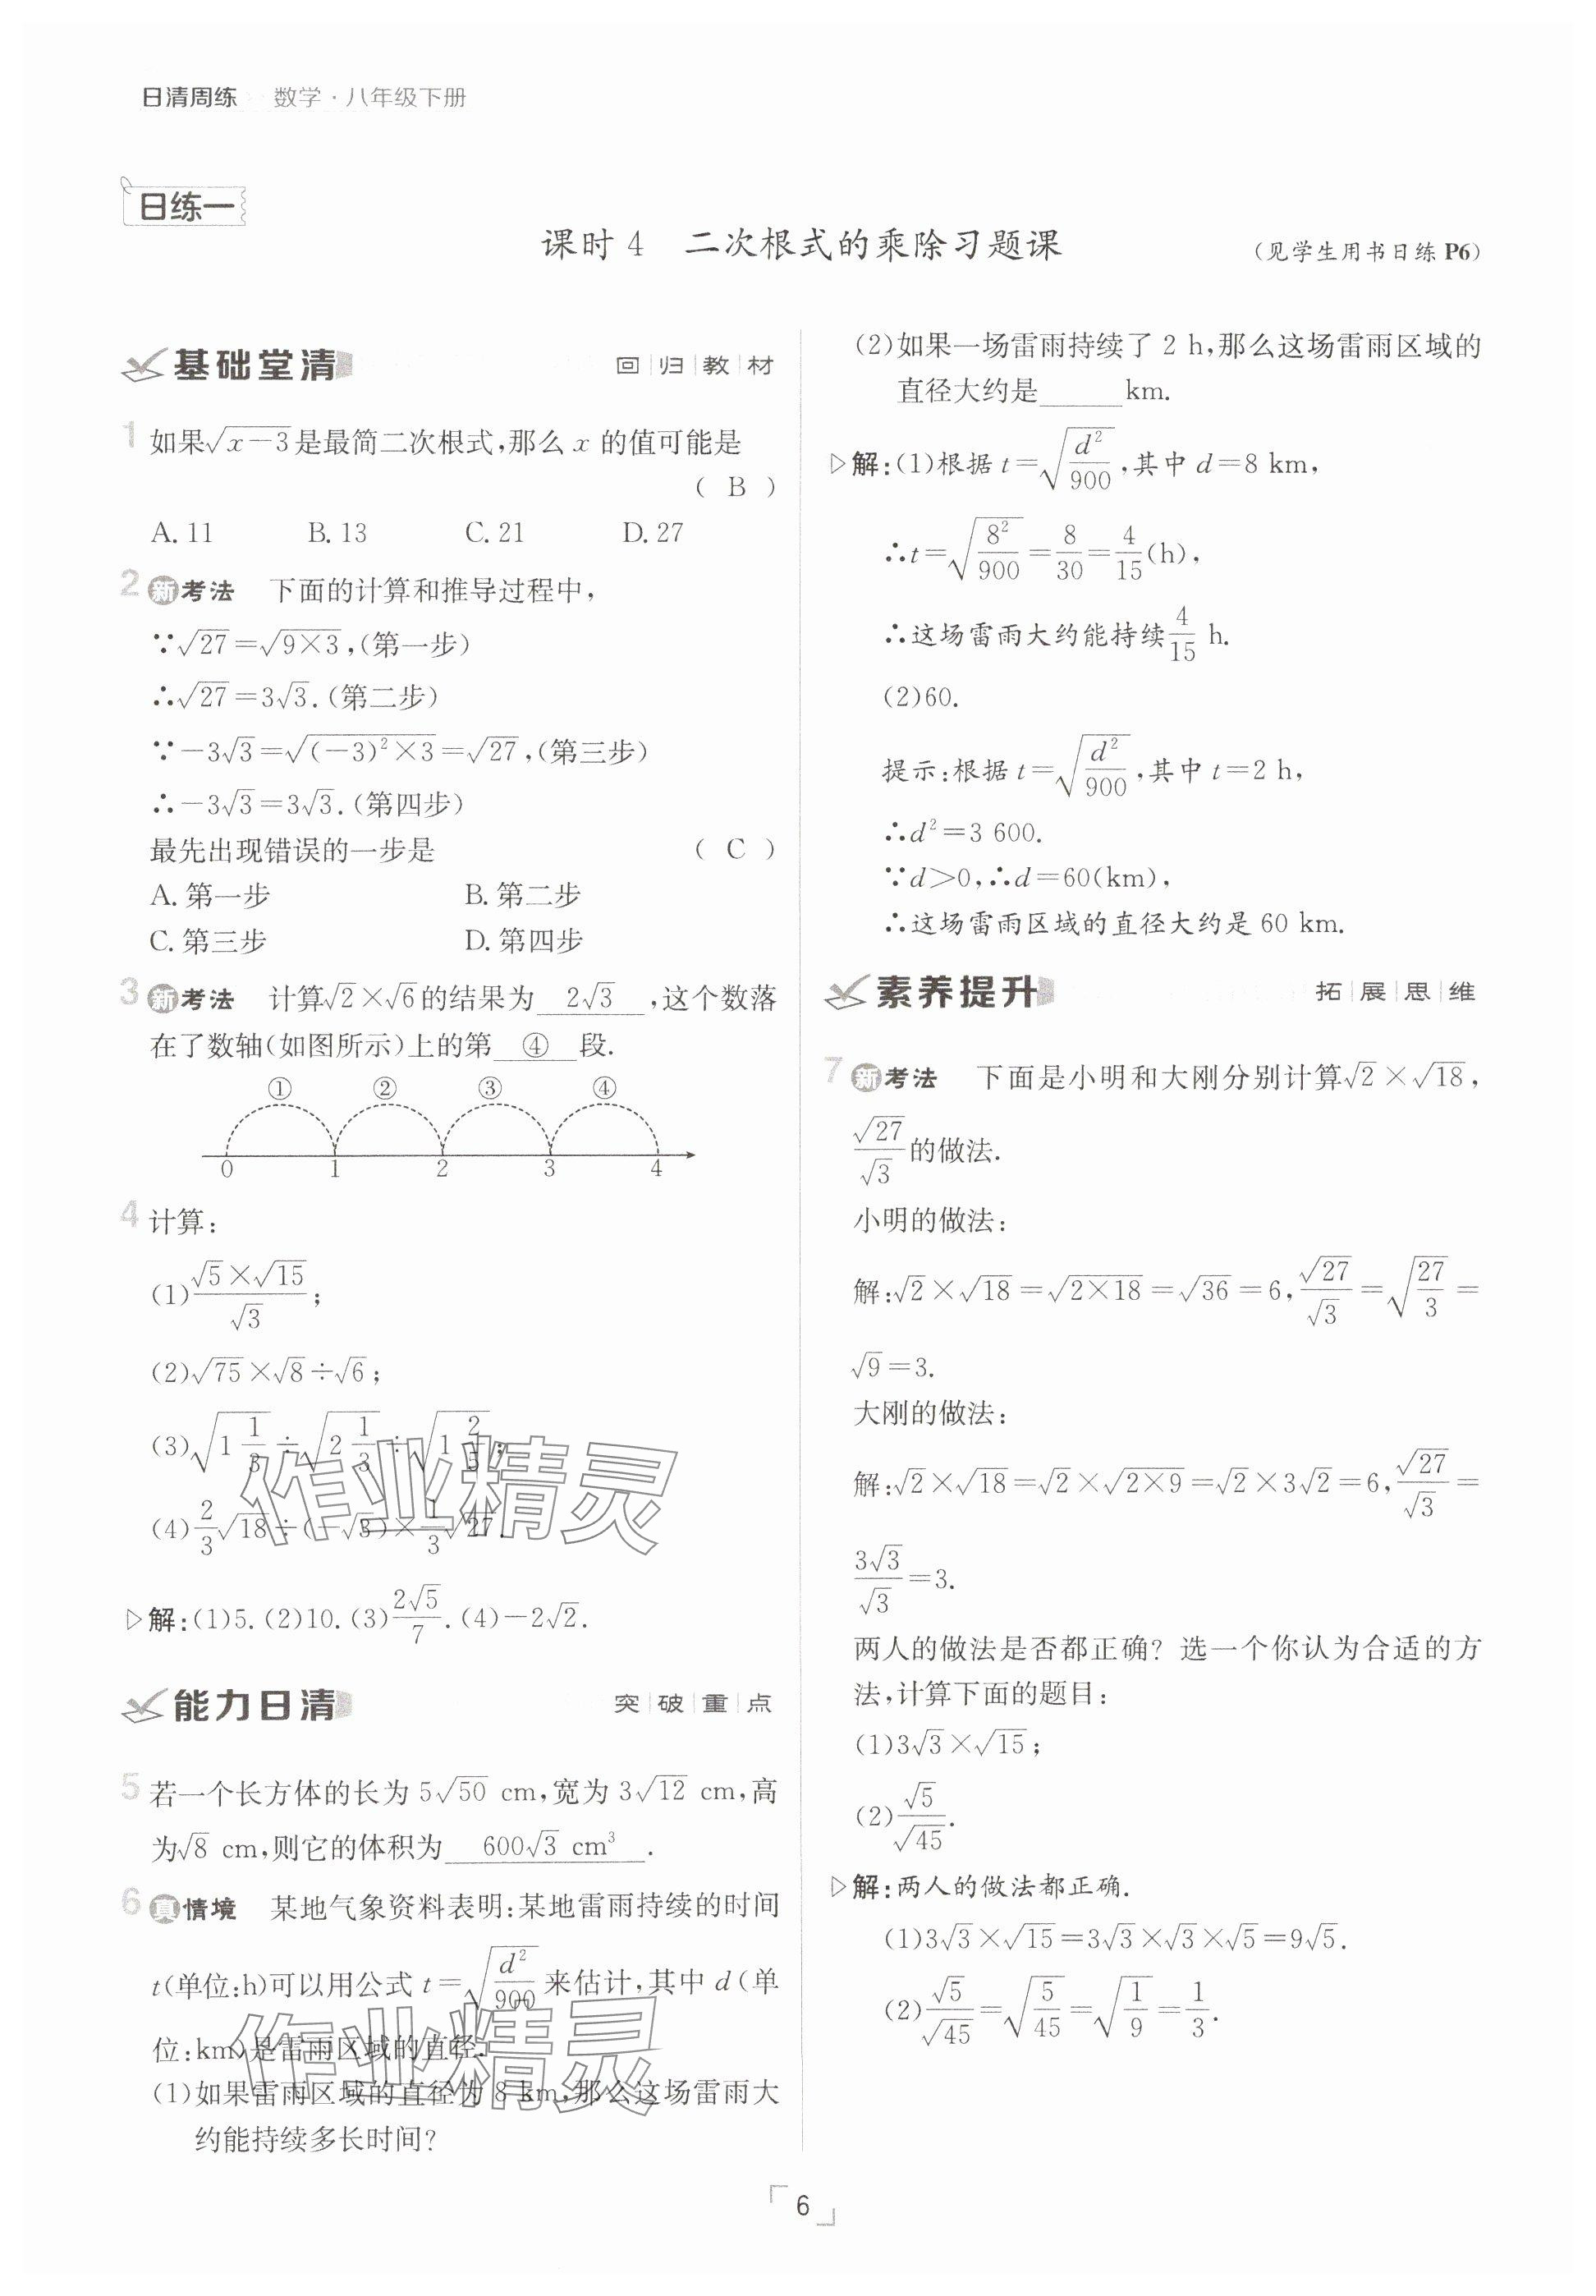 日清周练 数学·八年级下册
日练一
课时4 二次根式的乘除习题课 (见学生用书日练P6)
基础堂清 回归教材
1 如果√(x-3)是最简二次根式,那么 x 的值可能是
( B )
A. 11 B. 13 C. 21 D. 27
2 新考法 下面的计算和推导过程中,
∵√27=√(9×3),(第一步)
∴√27=3√3.(第二步)
∵-3√3=√((-3)²×3)=√27,(第三步)
∴-3√3=3√3.(第四步)
最先出现错误的一步是 ( C )
A. 第一步 B. 第二步
C. 第三步 D. 第四步
3 新考法 计算√2×√6的结果为 2√3 ,这个数落
在了数轴(如图所示)上的第 ④ 段.
① ② ③ ④
0 1 2 3 4
4 计算:
(1)(√5×√15)/√3;
(2)√75×√8÷√6;
(3)√(1 1/3)÷√(2 1/3)÷√(1 2/5);
(4)2/3√18÷(-√3)×1/3√27.
▷解:(1)5.(2)10.(3)2√5/7.(4)-2√2.
能力日清 突破重点
5 若一个长方体的长为 5√50 cm,宽为 3√12 cm,高
为√8 cm,则它的体积为 600√3 cm³ .
6 真情境 某地气象资料表明:某地雷雨持续的时间
t(单位:h)可以用公式 t=√(d²/900)来估计,其中 d(单
位:km)是雷雨区域的直径.
(1)如果雷雨区域的直径为 8 km,那么这场雷雨大
约能持续多长时间?
(2)如果一场雷雨持续了 2 h,那么这场雷雨区域的
直径大约是______km.
▷解:(1)根据 t=√(d²/900),其中 d=8 km,
∴t=√(8²/900)=8/30=4/15(h),
∴这场雷雨大约能持续4/15 h.
(2)60.
提示:根据 t=√(d²/900),其中 t=2 h,
∴d²=3 600.
∵d>0,∴d=60(km),
∴这场雷雨区域的直径大约是 60 km.
素养提升 拓展思维
7 新考法 下面是小明和大刚分别计算√2×√18,
√27/√3的做法.
小明的做法:
解:√2×√18=√(2×18)=√36=6,√27/√3=√(27/3)=
√9=3.
大刚的做法:
解:√2×√18=√2×√(2×9)=√2×3√2=6,√27/√3=
3√3/√3=3.
两人的做法是否都正确? 选一个你认为合适的方
法,计算下面的题目:
(1)3√3×√15;
(2)√5/√45.
▷解:两人的做法都正确.
(1)3√3×√15=3√3×√3×√5=9√5.
(2)√5/√45=√(5/45)=√(1/9)=1/3.
作业精灵
作业精灵
6